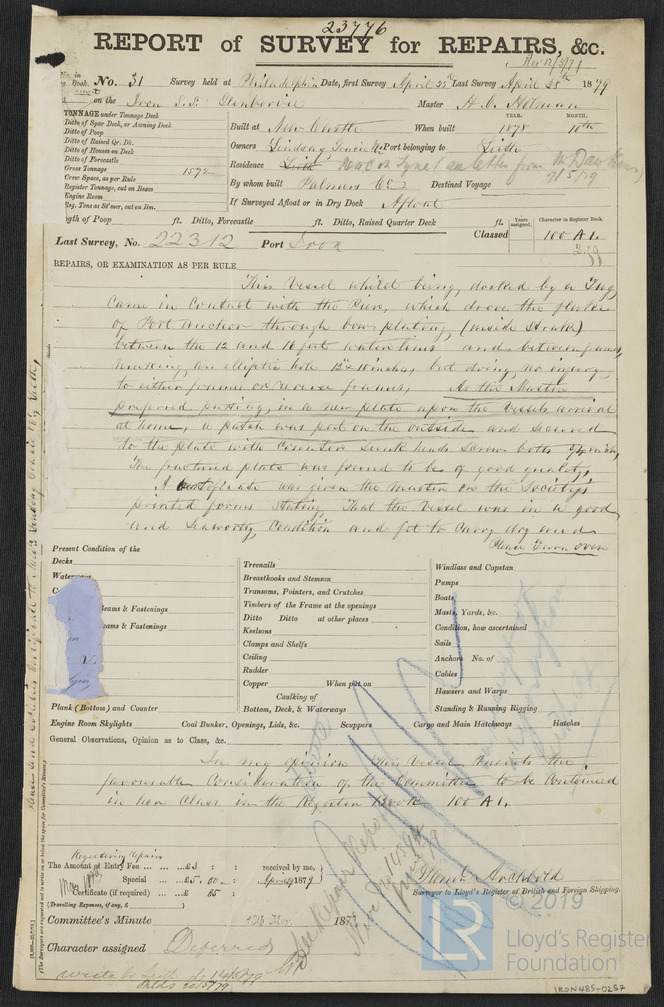 23776
REPORT of SURVEY for REPAIRS, &c.
No. 31 Survey held at Philadelphia Date, first Survey April 25th Last Survey April 28th 1879
on the Iron S.S. Glenbervie Master
TONNAGE under Tonnage Deck
Ditto of Spar Deck, or Awning Deck
Ditto of Poop
Ditto of Raised Qr. Dk.
Ditto of Houses on Deck
Ditto of Forecastle
Gross Tonnage 1572
Crew Space, as per Rule
Register Tonnage, cut on Beam
Engine Room
Reg. Tons as St'mer, cut on Bm.
YEAR. MONTH.
Built at When built 1878 10th
Owners Lindsay Gracie & Co Port belonging to Leith
Residence Leith Newc on Tyne (see letter from
9/5/79
By whom built Palmers Co Destined Voyage
If Surveyed Afloat or in Dry Dock Afloat
Length of Poop ft. Ditto, Forecastle ft. Ditto, Raised Quarter Deck ft.
Last Survey, No. 22312 Port Iron
Classed Years assigned. Character in Register Book.
100 A1.
REPAIRS, OR EXAMINATION AS PER RULE
This Vessel whilst being docked by a Tug
Came in Contact with the Pier, which drove the fluke
of Port Anchor through bow plating (inside Strake)
between the 12 and 16 feet water lines and between frames,
making an elliptic hole 12 x 10 inches, but doing no injury
to either frames or reverse frames, As the Master
preferred putting in a new plate upon the Vessels arrival
at home, a patch was put on the outside and secured
to the plate with Counter Sunk heads Screw bolts 3/4 inch,
The fractured plate was found to be of good quality,
A Certificate was given the master on the Society's
printed forms Stating That the Vessel was in a good
and Seaworthy Condition and fit to Carry dry and
Please Turn over
Present Condition of the
Decks
Waterways
Beams & Fastenings
Beams & Fastenings
Plank (Bottom) and Counter
Treenails
Breasthooks and Stemson
Transoms, Pointers, and Crutches
Timbers of the Frame at the openings
Ditto Ditto at other places
Keelsons
Clamps and Shelfs
Ceiling
Rudder
Copper When put on
Caulking of
Bottom, Deck, & Waterways
Windlass and Capstan
Pumps
Boats
Masts, Yards, &c.
Condition, how ascertained
Sails
Anchors No. of
Cables
Hawsers and Warps
Standing & Running Rigging
Engine Room Skylights Coal Bunker, Openings, Lids, &c. Scuppers Cargo and Main Hatchways Hatches
General Observations, Opinion as to Class, &c.
In my opinion This Vessel merits the
favourable Consideration of the Committee to be Continued
in her Class in the Register Book 100 A1.
Registering Repairs
The Amount of Entry Fee ... £3 : : received by me,
Special ... £5.00 : April 29 1879
Certificate (if required) ... £ 05 :
(Travelling Expenses, if any, £ )
Surveyor to Lloyd's Register of British and Foreign Shipping.
Committee's Minute 187
Character assigned Deferred
wrote to Leith
© 2019
LR
Lloyd's Register
Foundation
IRON485-0257